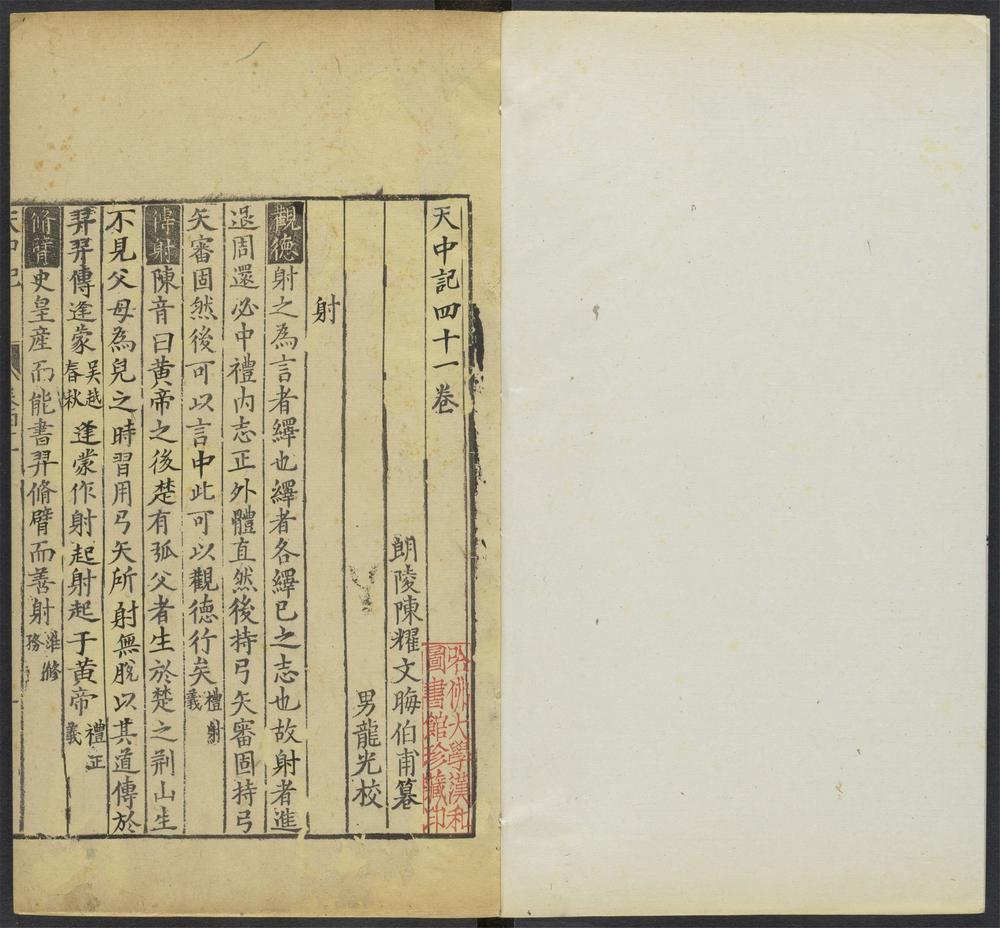 天中記四十一卷
朗陵陳耀文晦伯甫纂
男龍光校
射
觀德射之為言者繹也繹者各繹己之志也故射者進
退周還必中禮內志正外體直然後持弓矢審固持弓
矢審固然後可以言中此可以觀德行矣禮射義
傳射陳音曰黃帝之後楚有弧父者生於楚之荆山生
不見父母為兒之時習用弓矢所射無脫以其道傳於
羿羿傳逢蒙吳越春秋逢蒙作射起射起于黃帝禮正義
脩臂史皇産而能書羿脩臂而善射淮脩務
天中記
卷四十一
哈佛大學漢和
圖書館珍藏印